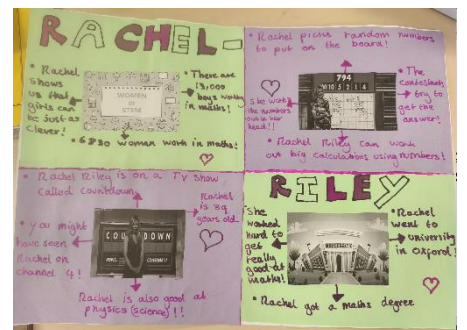 RACHEL-
• Rachel
shows
us that
girls can
be just as
clever!
WOMEN
IN
STEM
• There are
13,000
boys working
in maths!
• 6830 woman work in maths!
• Rachel picks random numbers
to put on the board!
794
She works
the numbers
out in her
head!!
• The
contestants
try to
get the
answer!
• Rachel Riley can work
out big calculations using numbers!
• Rachel Riley is on a TV show
called countdown
Rachel
is 39
years old
• you might
have seen
Rachel on
channel 4!
COUNTDOWN
Rachel is also good at
physics (science)!!
RILEY
She
worked
hard to
get
really
good at
maths!
• Rachel
went to
university
in Oxford!
• Rachel got a maths degree